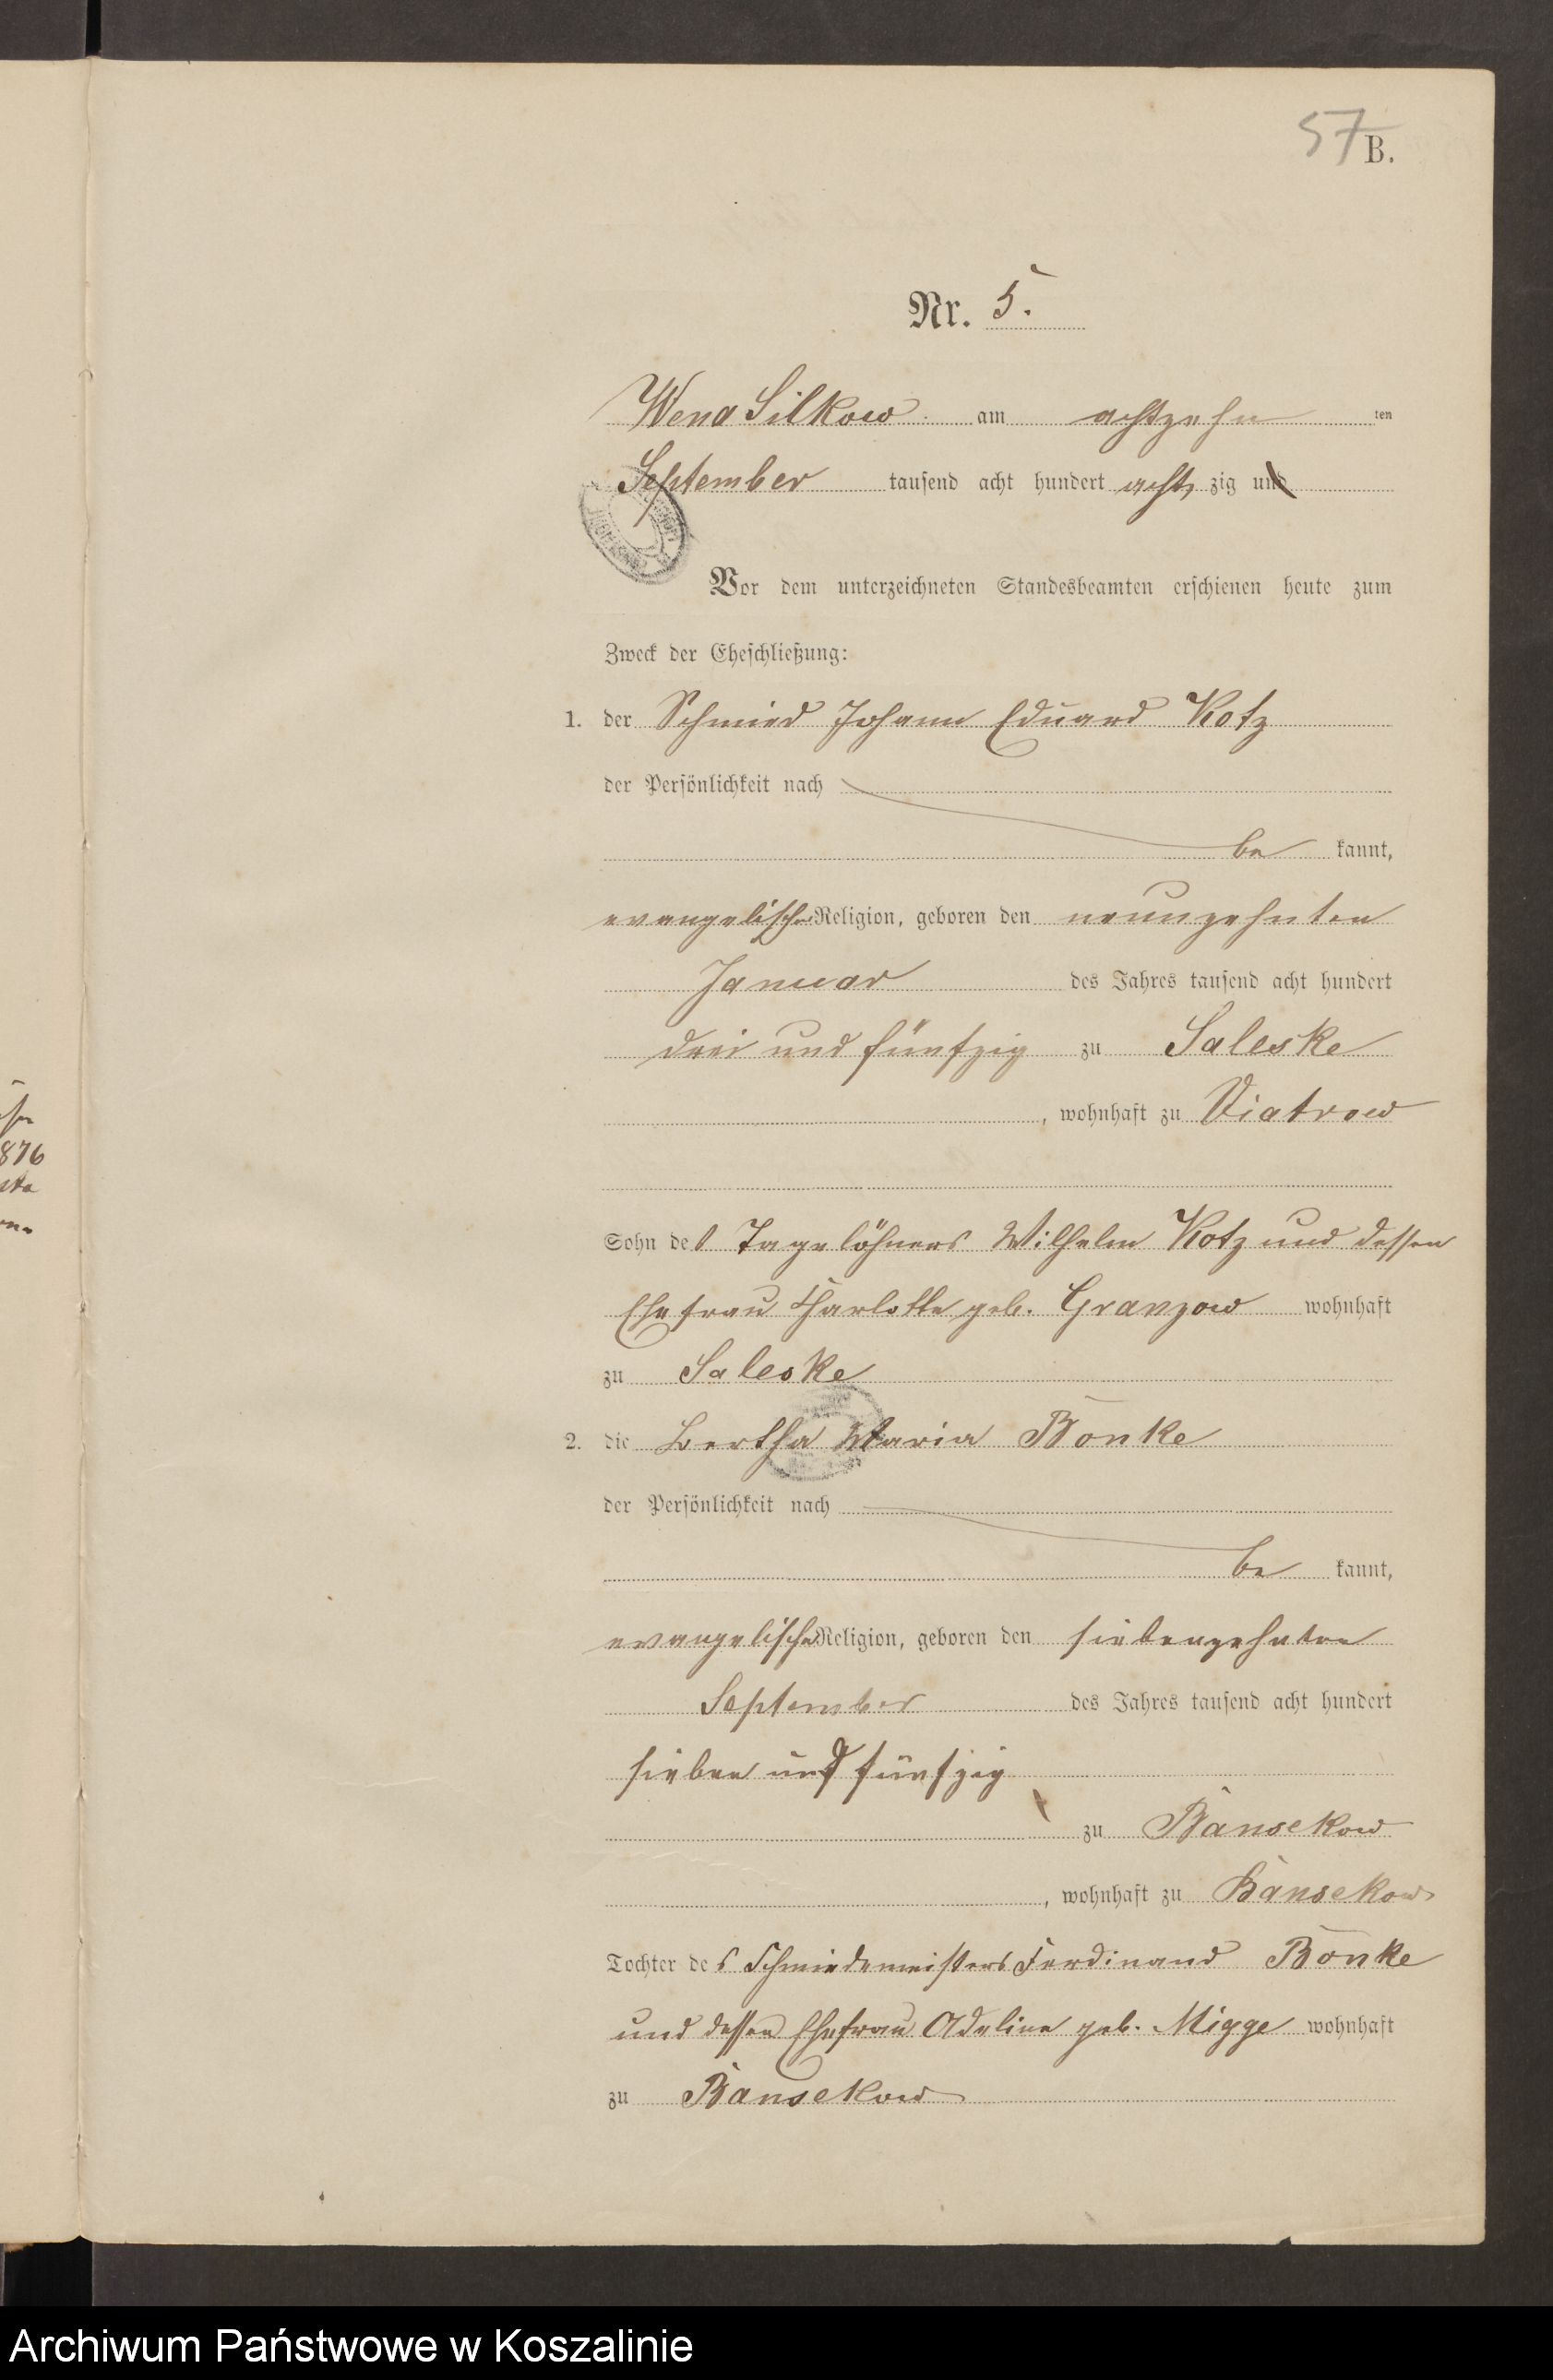 57
B.
Nr. 5.
Wend Silkow am achtzehn ten
September tausend acht hundert acht zig und
Vor dem unterzeichneten Standesbeamten erschienen heute zum
Zweck der Eheschließung:
1. der Schmied Johann Eduard Kotz
der Persönlichkeit nach
be kannt,
evangelischer Religion, geboren den neunzehnten
Januar des Jahres tausend acht hundert
drei und fünfzig zu Saleske
, wohnhaft zu Viatrow
Sohn des Tagelöhners Wilhelm Kotz und dessen
Ehefrau Charlotte geb. Granzow wohnhaft
zu Saleske
2. die Bertha Maria Bönke
der Persönlichkeit nach
be kannt,
evangelischer Religion, geboren den siebenzehnten
September des Jahres tausend acht hundert
sieben und fünfzig
zu Bansekow
, wohnhaft zu Bansekow
Tochter des Schmiedemeisters Ferdinand Bönke
und dessen Ehefrau Adeline geb. Migge wohnhaft
zu Bansekow
876
Archiwum Państwowe w Koszalinie